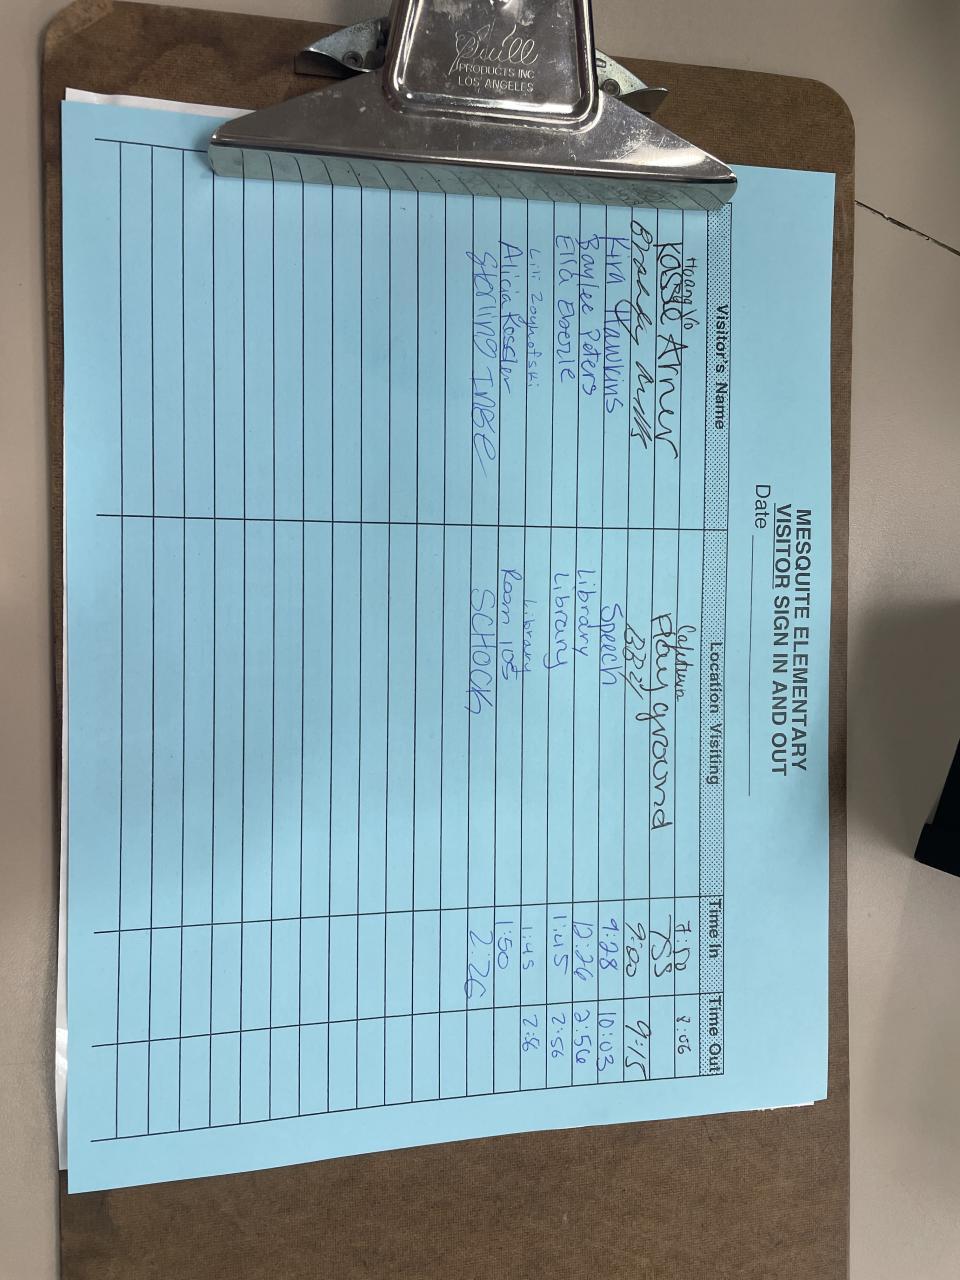 Quill
PRODUCTS INC
LOS ANGELES
MESQUITE ELEMENTARY
VISITOR SIGN IN AND OUT
Date
Visitor's Name Location Visiting Time In Time Out
Hoang Vo Cafeteria 7:50 8:06
Kasse Arner Playground 755
Brandy Mills 9:00 9:15
Kira Hawkins Speech 9:28 10:03
Baylee Peters Library 12:26 2:56
Ella Eberle Library 1:45 2:56
Lili Library 1:45 2:56
Alicia Kossler Room 105 1:50
Sterling INGE SCHOCK 2:26